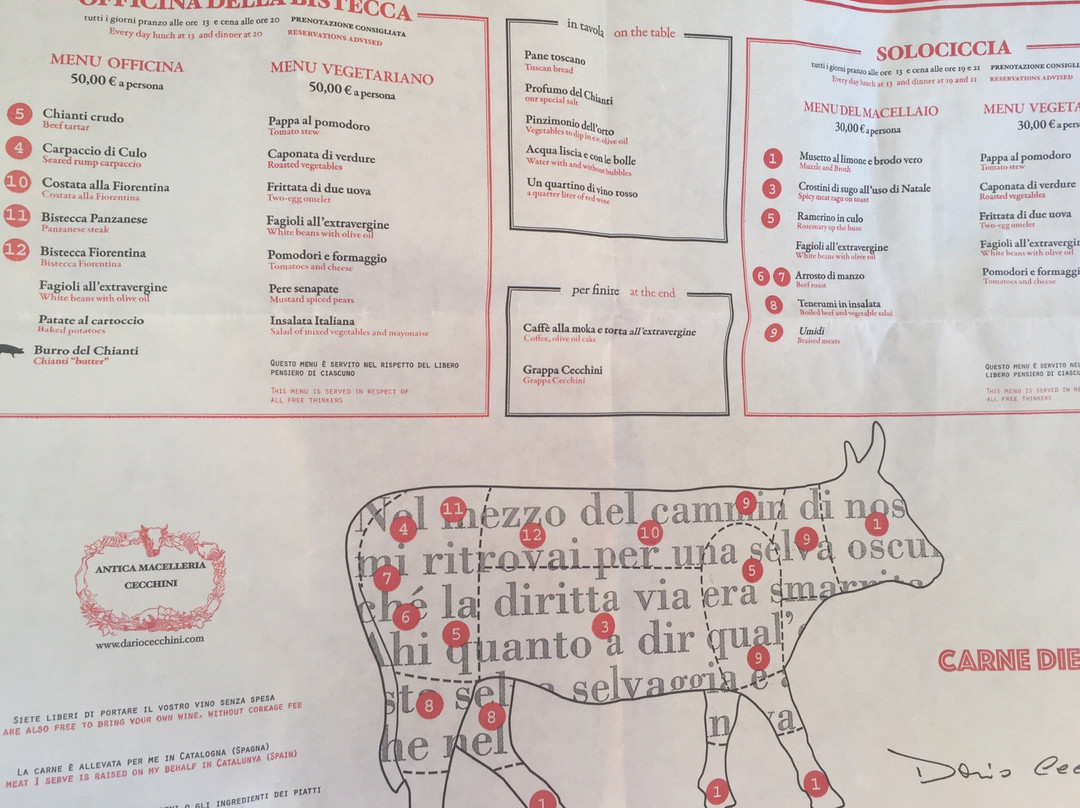 OFFICINA DELLA BISTECCA
tutti i giorni pranzo alle ore 13 e cena alle ore 20
Every day lunch at 13 and dinner at 20
PRENOTAZIONE CONSIGLIATA
RESERVATIONS ADVISED
MENU OFFICINA
50,00 € a persona
5 Chianti crudo
Beef tartar
4 Carpaccio di Culo
Seared rump carpaccio
10 Costata alla Fiorentina
Costata alla Fiorentina
11 Bistecca Panzanese
Panzanese steak
12 Bistecca Fiorentina
Bistecca Fiorentina
Fagioli all'extravergine
White beans with olive oil
Patate al cartoccio
Baked potatoes
Burro del Chianti
Chianti "butter"
MENU VEGETARIANO
50,00 € a persona
Pappa al pomodoro
Tomato stew
Caponata di verdure
Roasted vegetables
Frittata di due uova
Two-egg omelet
Fagioli all'extravergine
White beans with olive oil
Pomodori e formaggio
Tomatoes and cheese
Pere senapate
Mustard spiced pears
Insalata Italiana
Salad of mixed vegetables and mayonaise
QUESTO MENU È SERVITO NEL RISPETTO DEL LIBERO
PENSIERO DI CIASCUNO
THIS MENU IS SERVED IN RESPECT OF
ALL FREE THINKERS
in tavola on the table
Pane toscano
Tuscan bread
Profumo del Chianti
our special salt
Pinzimonio dell'orto
Vegetables to dip in ex. olive oil
Acqua liscia e con le bolle
Water with and without bubbles
Un quartino di vino rosso
a quarter liter of red wine
per finire at the end
Caffè alla moka e torta all'extravergine
Coffee, olive oil cake
Grappa Cecchini
Grappa Cecchini
SOLOCICCIA
tutti i giorni pranzo alle ore 13 e cena alle ore 19 e 21
Every day lunch at 13 and dinner at 19 and 21
PRENOTAZIONE CONSIGL
RESERVATIONS ADVISED
MENU DEL MACELLAIO
30,00 € a persona
1 Musetto al limone e brodo vero
Muzzle and Broth
3 Crostini di sugo all'uso di Natale
Spicy meat ragu on toast
5 Ramerino in culo
Rosemary up the bum
Fagioli all'extravergine
White beans with olive oil
6 7 Arrosto di manzo
Beef roast
8 Tenerumi in insalata
Boiled beef and vegetable salad
9 Umidi
Braised meats
MENU VEGETA
30,00 € a pers
Pappa al pomodoro
Tomato stew
Caponata di verdure
Roasted vegetables
Frittata di due uova
Two-egg omelet
Fagioli all'extraverg
White beans with olive oil
Pomodori e formagg
Tomatoes and cheese
QUESTO MENU È SERVITO NE
LIBERO PENSIERO DI CIASCU
THIS MENU IS SERVED IN R
ALL FREE THINKERS
Nel mezzo del cammin di nos
mi ritrovai per una selva oscu
ché la diritta via era smarrita
Ahi quanto a dir qual'
sta sel selvaggia e
n va
he nel
4
11
12
10
9
9
1
7
6
5
3
5
9
8
8
1
1
1
ANTICA MACELLERIA
CECCHINI
www.dariocecchini.com
SIETE LIBERI DI PORTARE IL VOSTRO VINO SENZA SPESA
ARE ALSO FREE TO BRING YOUR OWN WINE, WITHOUT CORKAGE FEE
LA CARNE È ALLEVATA PER ME IN CATALOGNA (SPAGNA)
MEAT I SERVE IS RAISED ON MY BEHALF IN CATALUNYA (SPAIN)
O GLI INGREDIENTI DEI PIATTI
CARNE DIE
Dario Cec